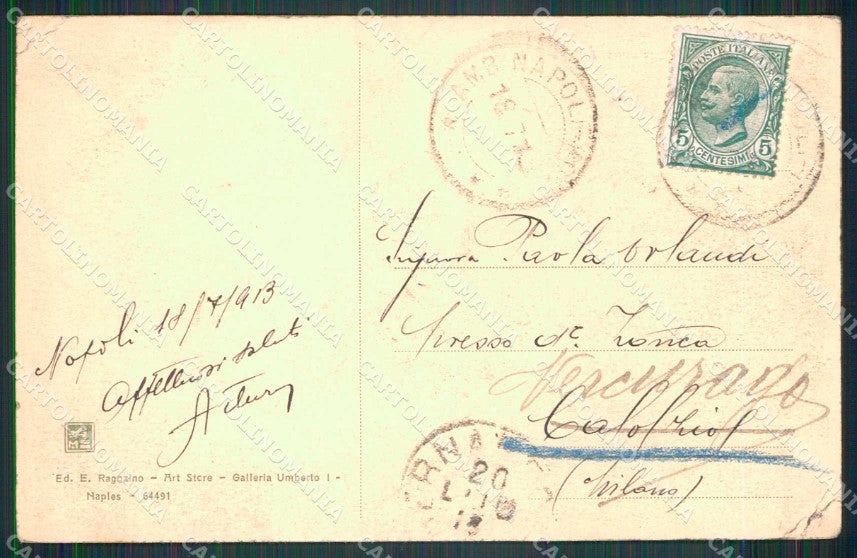 Napoli 18/7/913
Affettuosi saluti
Ed. E. Ragozino - Art Store - Galleria Umberto I -
Naples - 64491
AMB NAPOLI
18.7.1
POSTE ITALIANE
5 5
CENTESIMI
Signora Paola Orlandi
presso Sr.
Vercurago
Calolzio
(Milano)
20
CARTOLINOMANIA